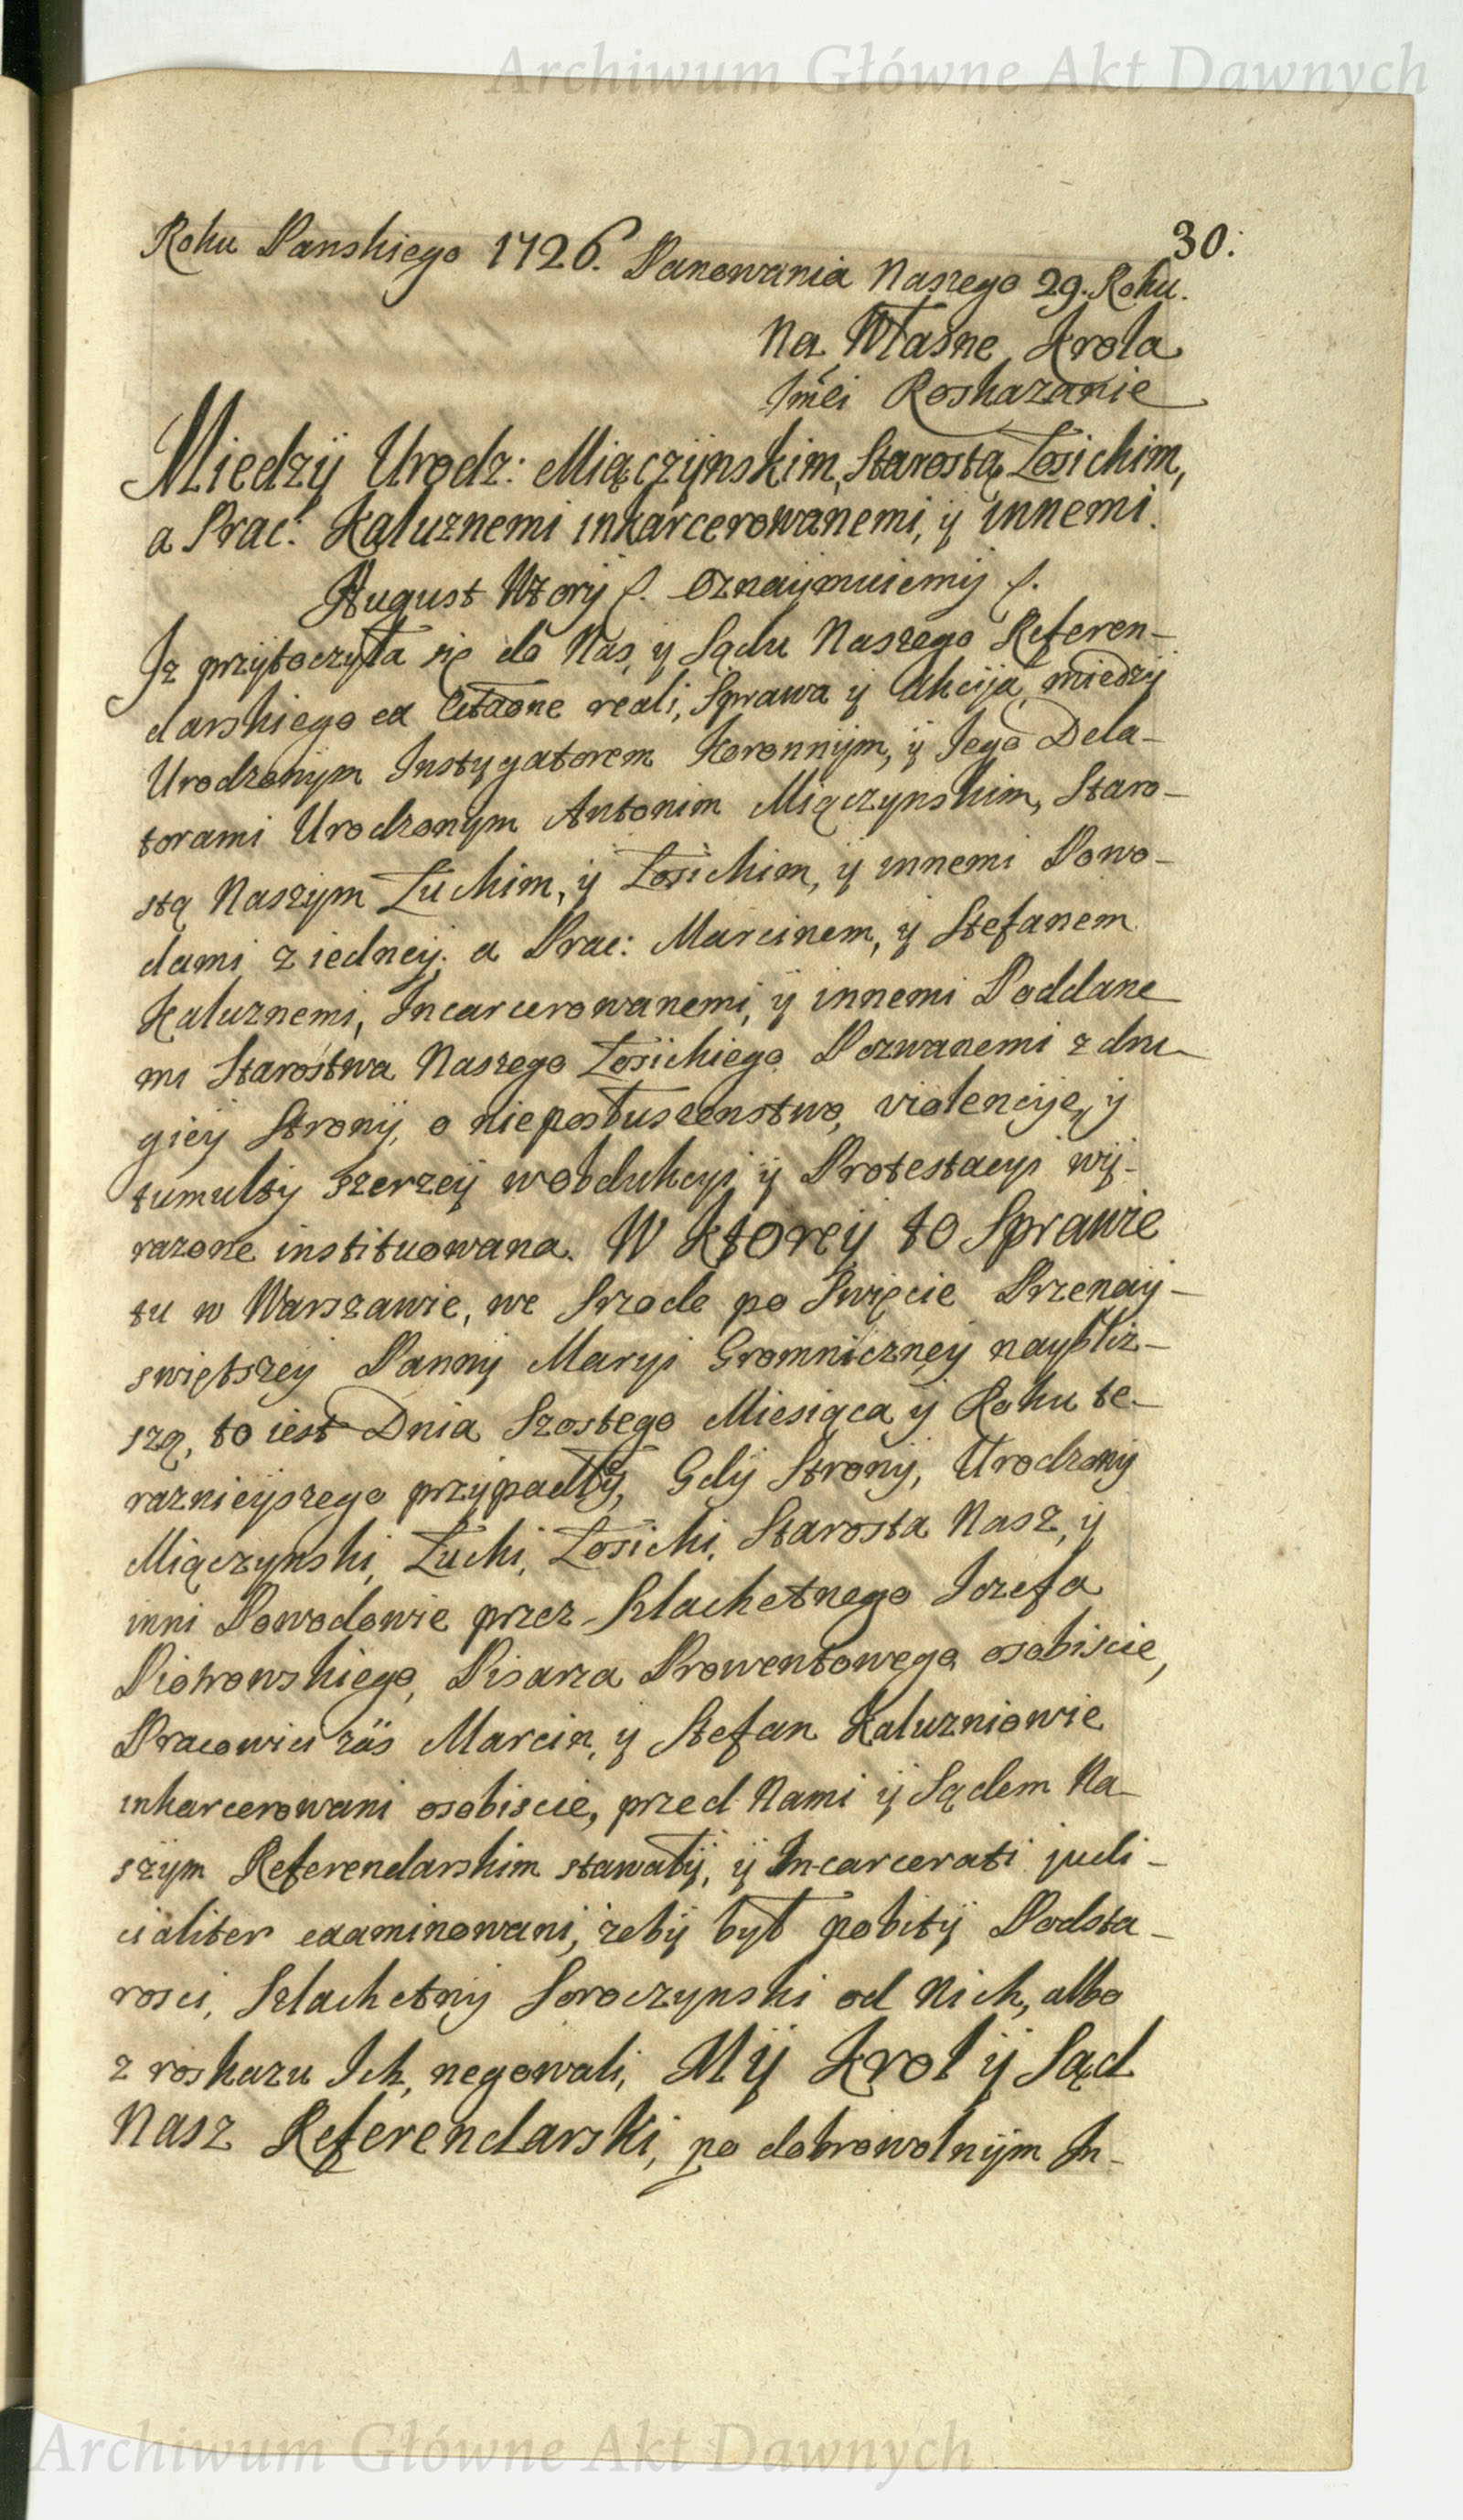 Archiwum Główne Akt Dawnych
30.
Roku Panskiego 1726. Panowania Naszego 29. Roku.
Na Własne Krola
Jmći Roskazanie
Miedzÿ Urodz: Miączÿnskim, Starostą Łosickim,
a Prac: Kałuznemi inkarcerowanemi, ÿ innemi.
August Wtorÿ f. Oznaÿmuiemÿ f.
Iz przÿtoczyła się do Nas, ÿ Sądu Naszego Referen-
darskiego ex Cita͠one reali, Sprawa ÿ Akcÿja miedzÿ
Urodzonÿm Instÿgatorem Koronnÿm, ÿ Jego Dela-
torami Urodzonym Antonim Miączynskim, Staro-
stą Naszÿm Łuckim, ÿ Łosickim, ÿ innemi Powo-
dami z iedneÿ. a Prac: Marcinem, ÿ Stefanem
Kałuznemi, Incarcerowanemi, ÿ innemi Poddane
mi Starostwa Naszego Łosickiego Pozwanemi z dru-
gieÿ Stronÿ, o nieposłuszenstwo, violencÿe, ÿ
tumultÿ szerzeÿ w obdukcÿi ÿ Protestacyi wÿ-
razone instituowana. W Ktoreÿ to Sprawie
tu w Warszawie, we Srzode po Swięcie Przenaÿ-
swiętszeÿ Pannÿ Maryi Gromniczneÿ naybliz-
szą, to iest Dnia Szostego Miesiąca ÿ Roku te-
raznieÿszego przÿpadłÿ, Gdÿ Stronÿ, Urodzonÿ
Miączynski, Łucki, Łosicki, Starosta Nasz, ÿ
inni Powodowie przez Szlachetnego Jozefa
Piotrowskiego, Pisarza Prowentowego osobiscie,
Pracowici zaś Marcin, ÿ Stefan Kałuzniowie
inkarcerowani osobiscie, przed Nami ÿ Sądem Na-
szÿm Referendarskim stawałÿ, ÿ Incarcerati judi-
cialiter examinowani, żebÿ był pobitÿ Podsta-
rosci, Szlachetnÿ Soroczynski od Nich, albo
z roskazu Ich, negowali, Mÿ Krol ÿ Sąd
Nasz Referendarski, po dobrowolnÿm In-
Archiwum Główne Akt Dawnych